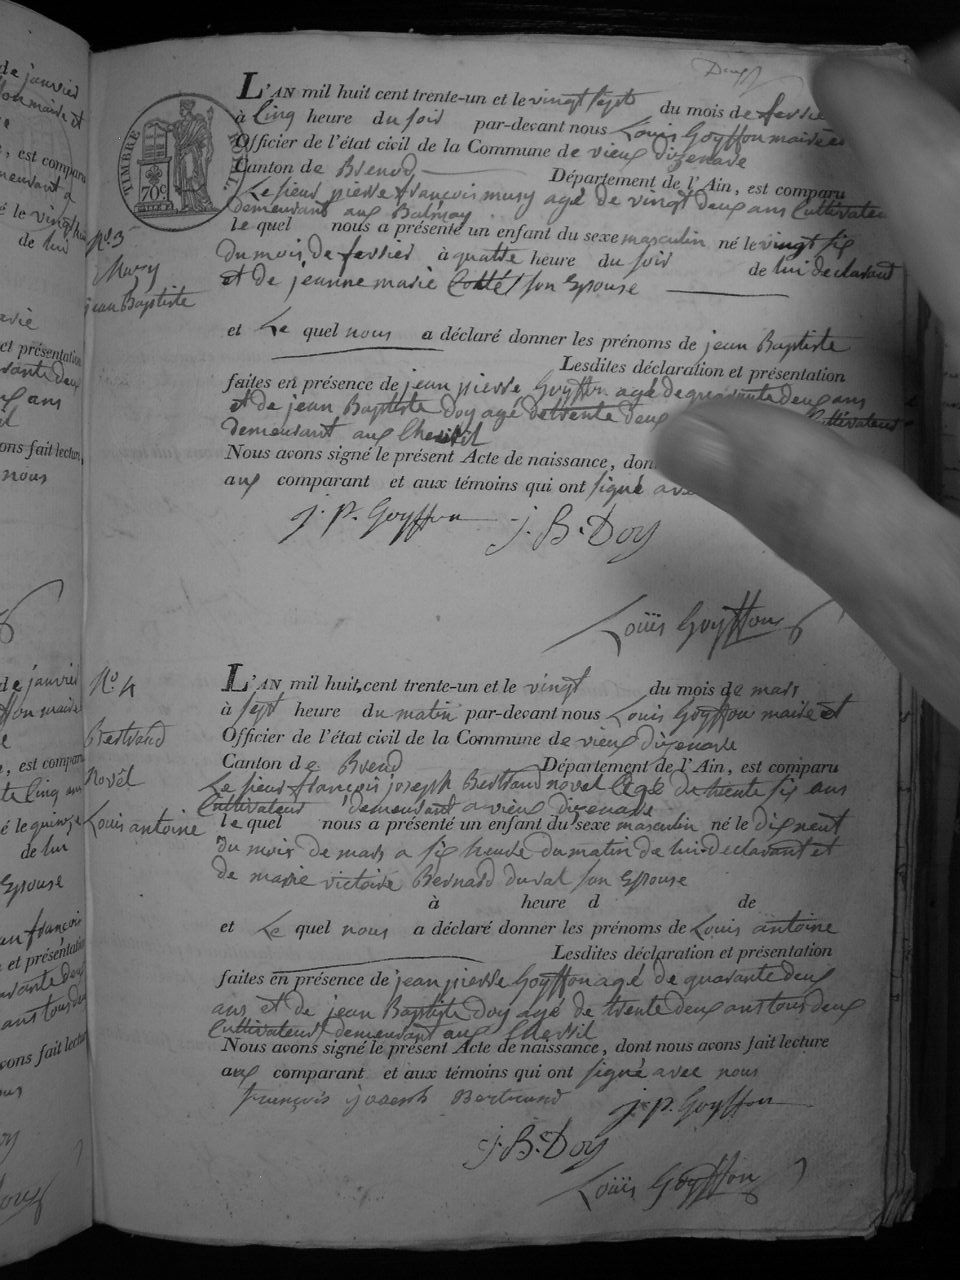 Deux
TIMBRE
70c
L'AN mil huit cent trente-un et le vingt sept du mois de fevrier
à Cinq heure du soir par-devant nous Louis Goyffon maire et
Officier de l'état civil de la Commune de vieux dizenave
Canton de Brenod, Département de l'Ain, est comparu
Le sieur pierre françois mury agé de vingt deux ans Cultivateur
demeurant aux Balmay
le quel nous a présenté un enfant du sexe masculin né le vingt six
du mois de fevrier à quatre heure du soir de lui declarant
et de jeanne marie son Epouse
N.° 3
Mury
jean Baptiste
et Le quel nous a déclaré donner les prénoms de jean Baptiste
Lesdites déclaration et présentation
faites en présence de jean pierre Goyffon agé de quarante deux ans
et de jean Baptiste Doy agé de trente deux Cultivateurs
demeurant aux Chevril
Nous avons signé le présent Acte de naissance, don
aux comparant et aux témoins qui ont signé avec
j. P. Goyffon j. B. Doy
Louis Goyffon
N.° 4
Bertrand
Novël
Louis antoine
L'AN mil huit cent trente-un et le vingt du mois de mars
à sept heure du matin par-devant nous Louis Goyffon maire et
Officier de l'état civil de la Commune de vieux dizenave
Canton de Brend Département de l'Ain, est comparu
Le sieur françois joseph Bertrand novel agé de trente six ans
Cultivateur demeurant a vieux dizenave
le quel nous a présenté un enfant du sexe masculin né le dix neuf
du mois de mars a six heure du matin de lui declarant et
de marie victoire Bernard duval son Epouse
à heure d de
et Le quel nous a déclaré donner les prénoms de Louis antoine
Lesdites déclaration et présentation
faites en présence de jean pierre Goyffon agé de quarante deux
ans et de jean Baptiste Doy agé de trente deux ans tous deux
Cultivateurs demeurant aux Chevril
Nous avons signé le présent Acte de naissance, dont nous avons fait lecture
aux comparant et aux témoins qui ont signé avec nous
françois joseph Bertrand j. p. Goyffon
j. B. Doy
Louis Goyffon